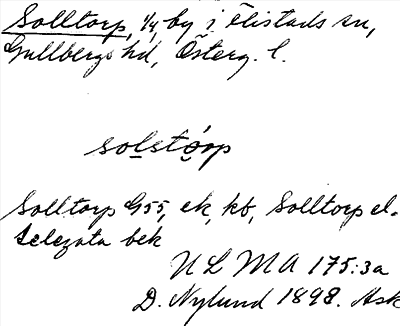 Solltorp, 1/4, by i Flistads sn,
Gullbergs hd, Österg. l.
solstórp
Solltorp G55, ek, kb, Solltorp el.
bek
ULMA 175:3a
D. Nylund 1898. Ask